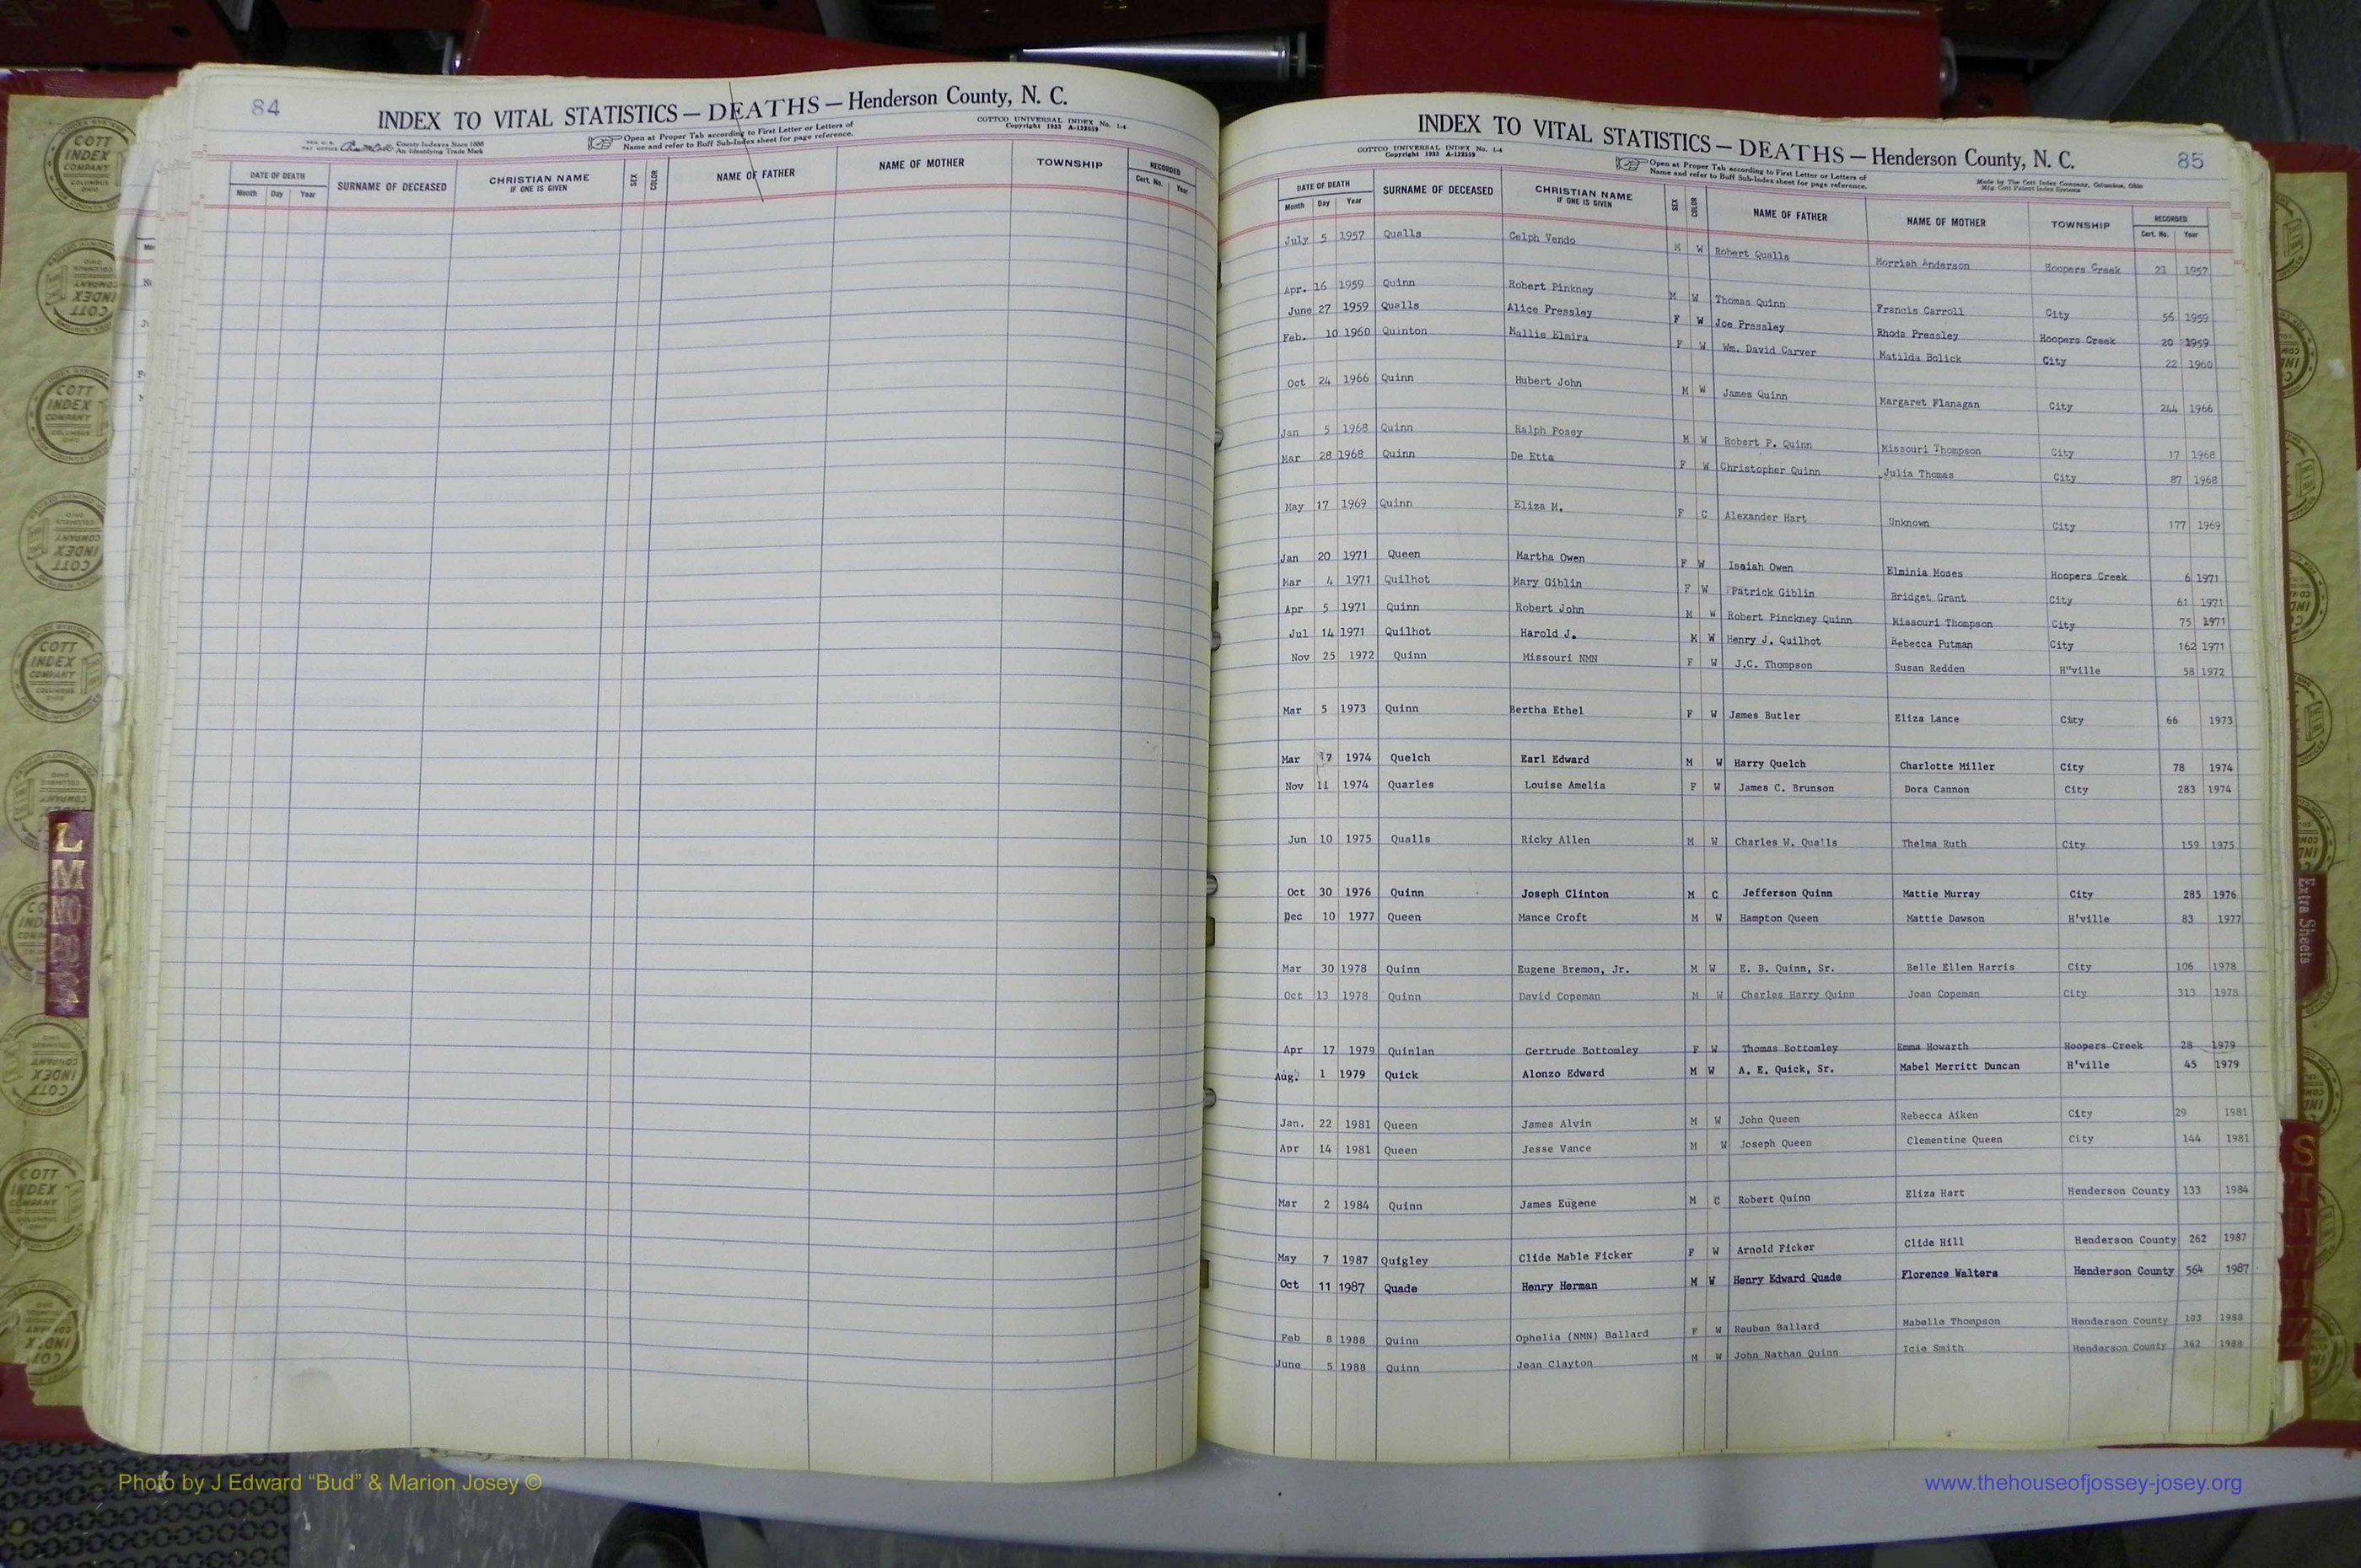 84
INDEX TO VITAL STATISTICS — DEATHS — Henderson County, N. C.
County Indexes Since 1888
An Identifying Trade Mark
Open at Proper Tab according to First Letter or Letters of
Name and refer to Buff Sub-Index sheet for page reference.
COTTCO UNIVERSAL INDEX No. 1-4
DATE OF DEATH SURNAME OF DECEASED CHRISTIAN NAME IF ONE IS GIVEN SEX COLOR NAME OF FATHER NAME OF MOTHER TOWNSHIP RECORDED
Month Day Year Cert. No. Year
INDEX TO VITAL STATISTICS — DEATHS — Henderson County, N. C.
85
COTTCO UNIVERSAL INDEX No. 1-4
Open at Proper Tab according to First Letter or Letters of
Name and refer to Buff Sub-Index sheet for page reference.
Made by The Cott Index Company, Columbus, Ohio
DATE OF DEATH SURNAME OF DECEASED CHRISTIAN NAME IF ONE IS GIVEN SEX COLOR NAME OF FATHER NAME OF MOTHER TOWNSHIP RECORDED
Month Day Year Cert. No. Year
July 5 1957 Qualls Celph Vendo M W Robert Qualls Morriah Anderson Hoopers Creek 21 1957
Apr. 16 1959 Quinn Robert Pinkney M W Thomas Quinn Francis Carroll City 56 1959
June 27 1959 Qualls Alice Pressley F W Joe Pressley Rhoda Pressley Hoopers Creek 20 1959
Feb. 10 1960 Quinton Mallie Elmira F W Wm. David Carver Matilda Bolick City 22 1960
Oct 24 1966 Quinn Hubert John M W James Quinn Margaret Flanagan City 244 1966
Jan 5 1968 Quinn Ralph Posey M W Robert P. Quinn Missouri Thompson City 17 1968
Mar 28 1968 Quinn De Etta F W Christopher Quinn Julia Thomas City 87 1968
May 17 1969 Quinn Eliza M. F C Alexander Hart Unknown City 177 1969
Jan 20 1971 Queen Martha Owen F W Isaiah Owen Elminia Moses Hoopers Creek 6 1971
Mar 4 1971 Quilhot Mary Giblin F W Patrick Giblin Bridget Grant City 61 1971
Apr 5 1971 Quinn Robert John M W Robert Pinckney Quinn Missouri Thompson City 75 1971
Jul 14 1971 Quilhot Harold J. M W Henry J. Quilhot Rebecca Putman City 162 1971
Nov 25 1972 Quinn Missouri NMN F W J.C. Thompson Susan Redden H"ville 58 1972
Mar 5 1973 Quinn Bertha Ethel F W James Butler Eliza Lance City 66 1973
Mar 7 1974 Quelch Earl Edward M W Harry Quelch Charlotte Miller City 78 1974
Nov 11 1974 Quarles Louise Amelia F W James C. Brunson Dora Cannon City 283 1974
Jun 10 1975 Qualls Ricky Allen M W Charles W. Qualls Thelma Ruth City 159 1975
Oct 30 1976 Quinn Joseph Clinton M C Jefferson Quinn Mattie Murray City 285 1976
Dec 10 1977 Queen Mance Croft M W Hampton Queen Mattie Dawson H'ville 83 1977
Mar 30 1978 Quinn Eugene Bremon, Jr. M W E. B. Quinn, Sr. Belle Ellen Harris City 106 1978
Oct 13 1978 Quinn David Copeman M W Charles Harry Quinn Joan Copeman City 313 1978
Apr 17 1979 Quinlan Gertrude Bottomley F W Thomas Bottomley Emma Howarth Hoopers Creek 28 1979
Aug. 1 1979 Quick Alonzo Edward M W A. E. Quick, Sr. Mabel Merritt Duncan H'ville 45 1979
Jan. 22 1981 Queen James Alvin M W John Queen Rebecca Aiken City 29 1981
Apr 14 1981 Queen Jesse Vance M W Joseph Queen Clementine Queen City 144 1981
Mar 2 1984 Quinn James Eugene M C Robert Quinn Eliza Hart Henderson County 133 1984
May 7 1987 Quigley Clide Mable Ficker F W Arnold Ficker Clide Hill Henderson County 262 1987
Oct 11 1987 Quade Henry Herman M W Henry Edward Quade Florence Walters Henderson County 564 1987
Feb 8 1988 Quinn Ophelia (NMN) Ballard F W Reuben Ballard Mabelle Thompson Henderson County 103 1988
June 5 1988 Quinn Jean Clayton M W John Nathan Quinn Icie Smith Henderson County 362 1988
L
M
Extra Sheets
COTT INDEX COMPANY COLUMBUS OHIO
Photo by J Edward “Bud” & Marion Josey ©
www.thehouseofjossey-josey.org